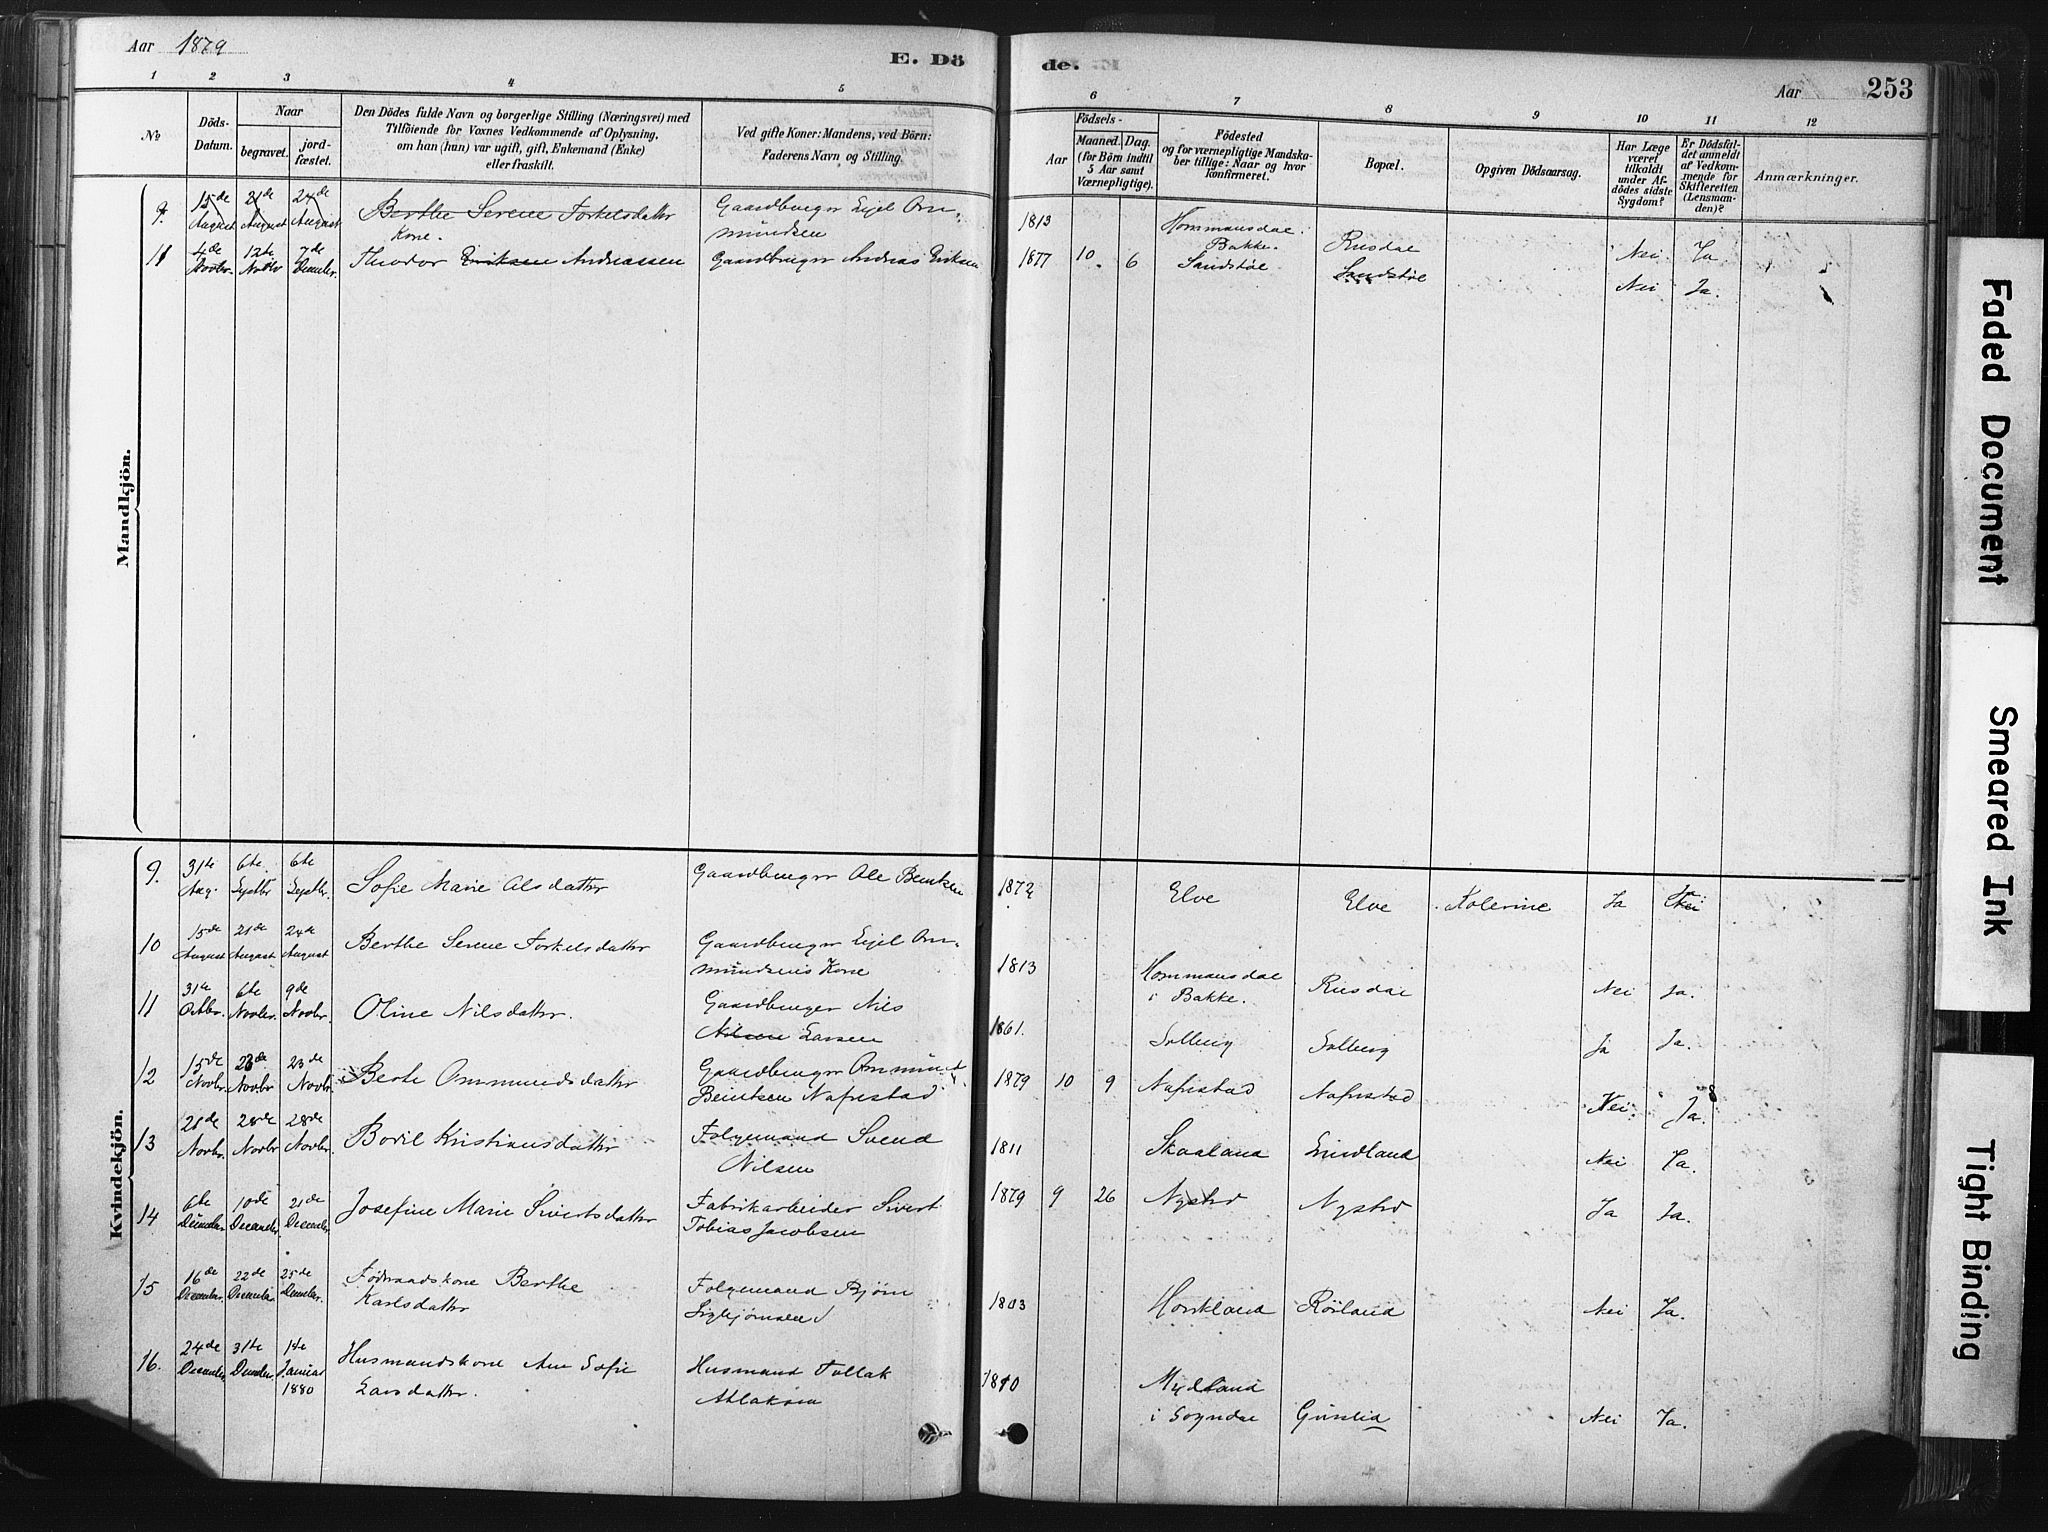 Aar 1879
E. Dö
de.
Aar
253
1 2 3 4 5 6 7 8 9 10 11 12
No
Döds-
Datum.
Naar
begravet.
jord-
fæstet.
Den Dödes fulde Navn og borgerlige Stilling (Næringsvei) med
Tilföiende for Voxnes Vedkommende af Oplysning,
om han (hun) var ugift, gift, Enkemand (Enke)
eller fraskilt.
Ved gifte Koner: Mandens, ved Börn:
Faderens Navn og Stilling.
Födsels-
Aar
Maaned. Dag.
(for Börn indtil
5 Aar samt
Værnepligtige).
Födested
og for værnepligtige Mandska-
ber tillige: Naar og hvor
konfirmeret.
Bopæl.
Opgiven Dödsaarsag.
Har Læge
været
tilkaldt
under Af-
dödes sidste
Sygdom?
Er Dödsfal-
det anmeldt
af Vedkom-
mende for
Skifteretten
(Lensman-
den)?
Anmærkninger.
Mandkjön.
9. 15de 21de 24de Berthe Serene Torkelsdatter Gaardbruger Eyel Om- 1813 Hommansdal i
August August August Kone. mundsen Bakke. Rusdal Nei. Ja
11 4de 12te 7de Theodor Eriksen Andreassen Gaardbruger Andreas Eriksen 1877 10 6 Sandstøl Sandstøl Nei Ja.
Novbr. Novbr Decmbr.
Kvindekjön.
9. 31te 6te 6te Sofie Marie Olsdatter Gaardbruger Ole Bentsen 1872 Elve Elve Kolerine Ja Nei
Aug. Septbr Septbr.
10 15de 21de 24de Berthe Serene Torkelsdatter Gaardbruger Eyel Om-
August August August mundsens Kone 1813 Hommansdal
i Bakke. Rusdal Nei Ja.
11 31te 6te 9de Oline Nilsdatter. Gaardbruger Nils
Octbr. Novbr. Novbr. Nilsen Larsen 1861. Solberg Solberg Ja Ja.
12 15de 23de 23de Berte Ommundsdatter Gaardbruger Ommund
Novbr. Novbr Novbr. Beintsen Nafrestad 1879 10 9 Nafrestad Nafrestad Nei. Ja.
13 21de 28de 28de Boril Kristiansdatter Folgemand Svend
Novbr. Novbr Novbr. Nilsen 1811 Skaaland Grudland Nei Ja.
14 6te 10de 21de Josefine Marie Sivertsdatter Fabrikarbeider Sivert
Decmber. December. December. Tobias Jacobsen 1879 9 26 Nystrd Nystrd Ja Ja.
15 16de 22de 25de Födraadskone Berthe Folgemand Bjørn
December. December. December. Karlsdatter Sigbjørnsen 1803 Haukland Röiland Nei Ja.
16. 24de 31te 1te Husmandskone Ane Sofie Husmand Tollak
December. Decmber. Januar Larsdatter. Atlaksen 1810 Mydland
1880 i Sogndal Gunlid Nei Ja.
Faded Document
Smeared Ink
Tight Binding